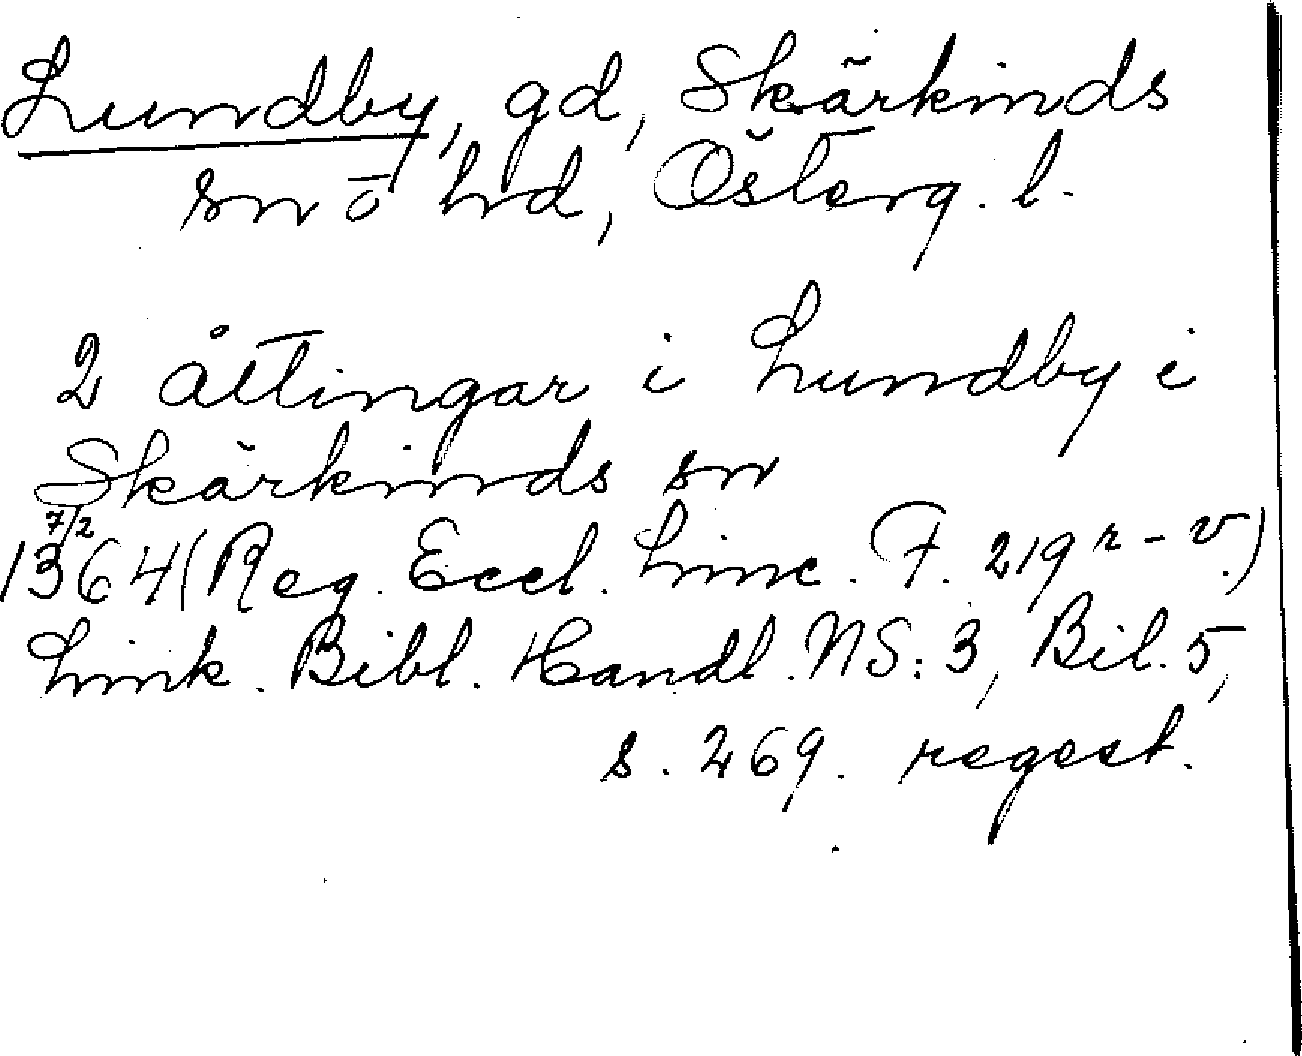 Lundby, gd, Skärkinds
sn o hd, Österg. l.
2 åttingar i Lundby i
Skärkinds sn
7/2
1364 (Reg. Eccl. Linc. F. 219 r - v.)
Link. Bibl. Handl. NS: 3, Bil. 5,
s. 269. regest.